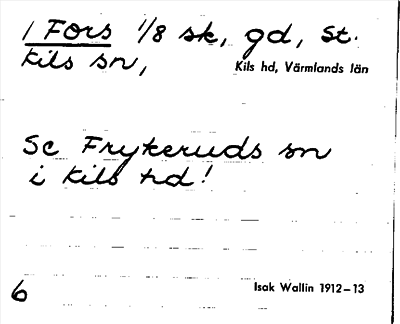 1 Fors 1/8 sk, gd, St.
Kils sn,
Kils hd, Värmlands län
Se Frykeruds sn
i Kils hd!
6
Isak Wallin 1912–13